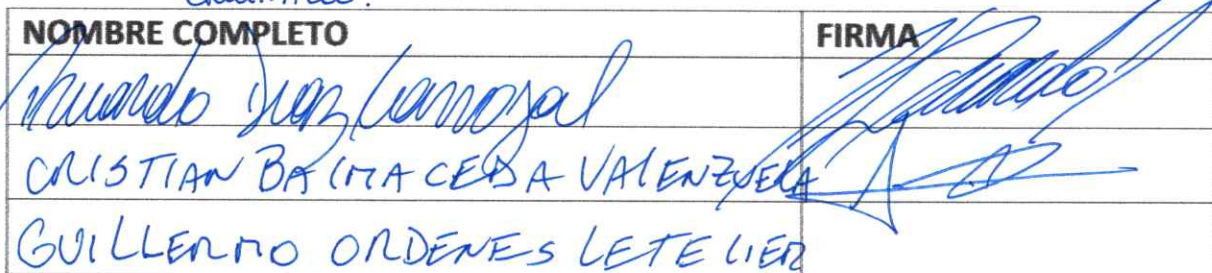 NOMBRE COMPLETO FIRMA
Eduardo Diaz Carvajal Eduardo
CRISTIAN BALMACEDA VALENZUELA
GUILLERMO ORDENES LETELIER